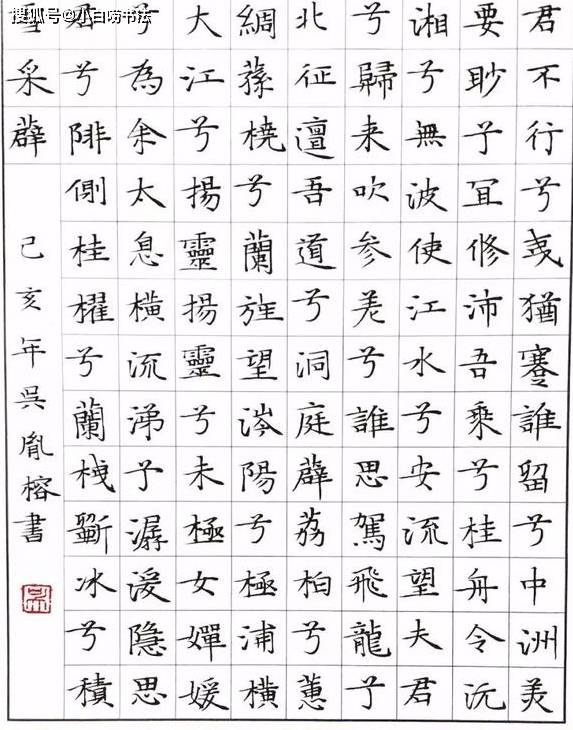 搜狐号@小白唠书法
君不行兮夷猶蹇誰留兮中洲美
要眇兮冝修沛吾乘兮桂舟令沅
湘兮無波使江水兮安流望夫君
兮歸来吹参差兮誰思駕飛龍兮
北征邅吾道兮洞庭薜荔柏兮蕙
綢蓀橈兮蘭旌望涔陽兮極浦橫
大江兮揚靈揚靈兮未極女嬋媛
兮為余太息橫流涕兮潺湲隱思
君兮陫側桂櫂兮蘭枻斲冰兮積
雪采薜
己亥年吳胤榕書